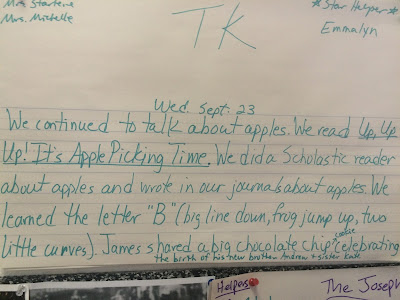 Mrs. Starlene
Mrs. Michelle
TK
*Star Helper*
Emmalyn
Wed. Sept. 23
We continued to talk about apples. We read Up, Up,
Up! It's Apple Picking Time. We did a Scholastic reader
about apples and wrote in our journals about apples. We
learned the letter "B" (big line down, frog jump up, two
little curves). James shared a big chocolate chip cookie celebrating
the birth of his new brother Andrew + sister Kate
Helpers
The Joseph